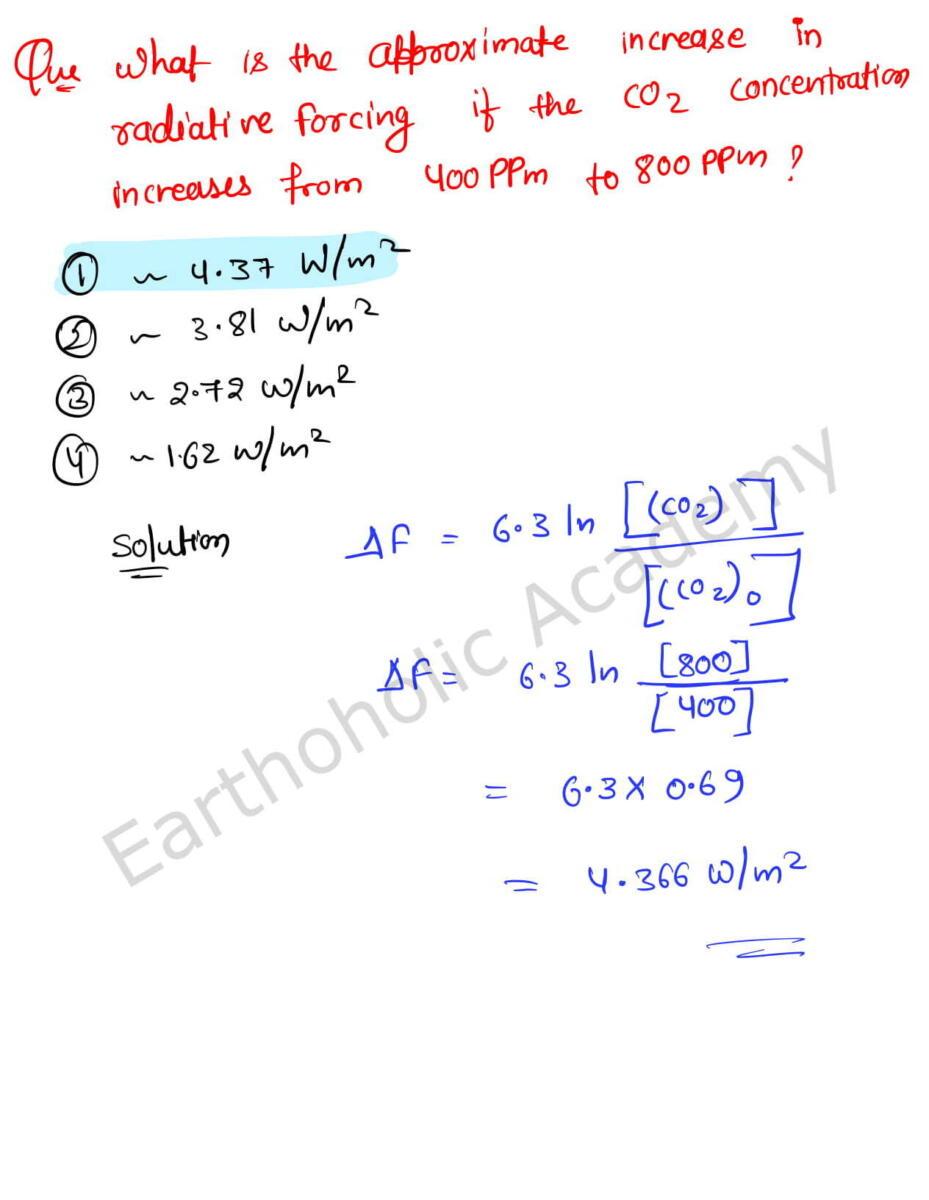 Que What is the approximate increase in
radiative forcing if the CO2 concentration
increases from 400 PPm to 800 PPm ?
① ~ 4.37 W/m²
② ~ 3.81 W/m²
③ ~ 2.72 W/m²
④ ~ 1.62 W/m²
Solution
ΔF = 6.3 ln [(CO2)] / [(CO2)0]
ΔF = 6.3 ln [800] / [400]
= 6.3 X 0.69
= 4.366 W/m²
Earthoholic Academy